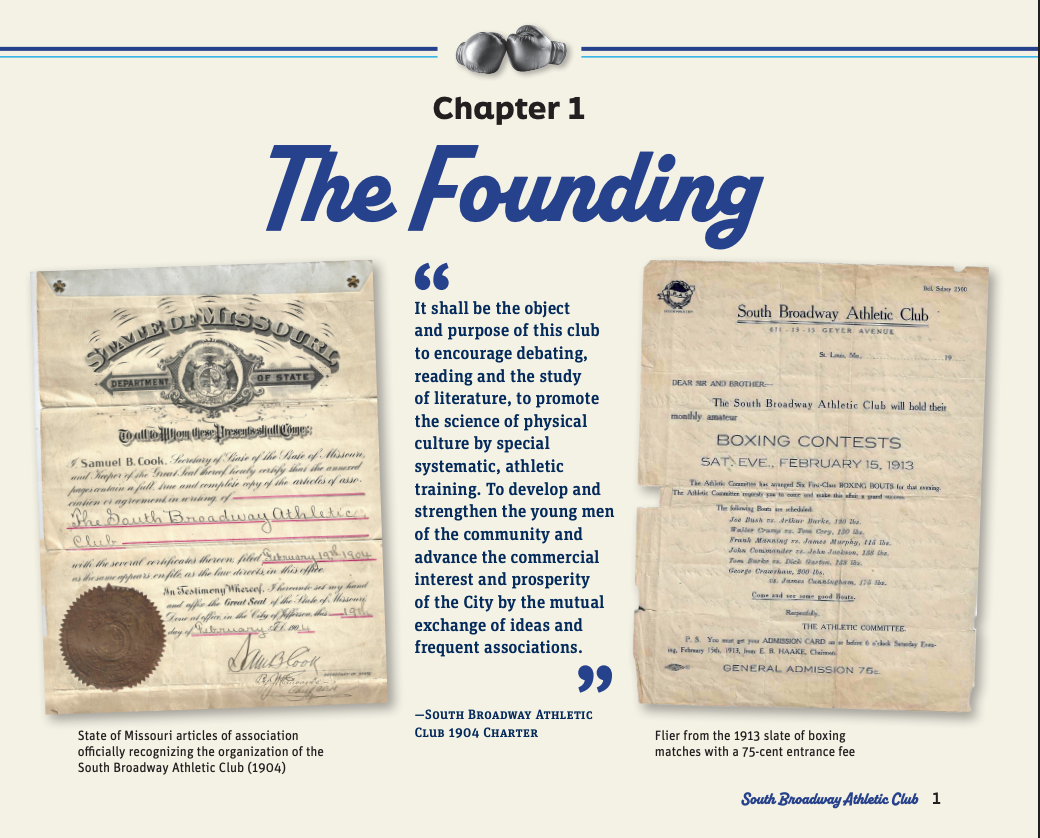 Chapter 1
The Founding
STATE OF MISSOURI
DEPARTMENT OF STATE
To all to Whom these Presents shall Come:
I Samuel B. Cook, Secretary of State of the State of Missouri,
and Keeper of the Great Seal thereof, hereby certify that the annexed
pages contain a full, true and complete copy of the articles of asso-
ciation or agreement in writing, of
The South Broadway Athletic
Club
with the several certificates thereon, filed February 19th 1904
as the same appears on file, as the law directs, in this office.
In Testimony Whereof, I hereunto set my hand
and affix the Great Seal of the State of Missouri.
Done at office, in the City of Jefferson, this 19th
day of February A.D. 1904
Sam B Cook
SECRETARY OF STATE
State of Missouri articles of association
officially recognizing the organization of the
South Broadway Athletic Club (1904)
“
It shall be the object
and purpose of this club
to encourage debating,
reading and the study
of literature, to promote
the science of physical
culture by special
systematic, athletic
training. To develop and
strengthen the young men
of the community and
advance the commercial
interest and prosperity
of the City by the mutual
exchange of ideas and
frequent associations.
”
—South Broadway Athletic
Club 1904 Charter
Bell, Sidney 2500
South Broadway Athletic Club
811-13-15 GEYER AVENUE
St. Louis, Mo., 19
DEAR SIR AND BROTHER:—
The South Broadway Athletic Club will hold their
monthly amateur
BOXING CONTESTS
SAT. EVE., FEBRUARY 15, 1913
The Athletic Committee has arranged Six First-Class BOXING BOUTS for that evening.
The Athletic Committee requests you to come and make this affair a grand success.
The following Bouts are scheduled:
Joe Bush vs. Arthur Burke, 130 lbs.
Walter Crump vs. Tom Cory, 120 lbs.
Frank Manning vs. James Murphy, 115 lbs.
John Commander vs. John Jackson, 138 lbs.
Tom Burke vs. Dick Garton, 148 lbs.
George Crawshaw, 200 lbs.
vs. James Cunningham, 175 lbs.
Come and see some good Bouts.
Respectfully,
THE ATHLETIC COMMITTEE.
P. S. You must get your ADMISSION CARD on or before 6 o'clock Saturday Even-
ing, February 15th, 1913, from E. B. HAAKE, Chairman.
GENERAL ADMISSION 75c.
Flier from the 1913 slate of boxing
matches with a 75-cent entrance fee
South Broadway Athletic Club 1